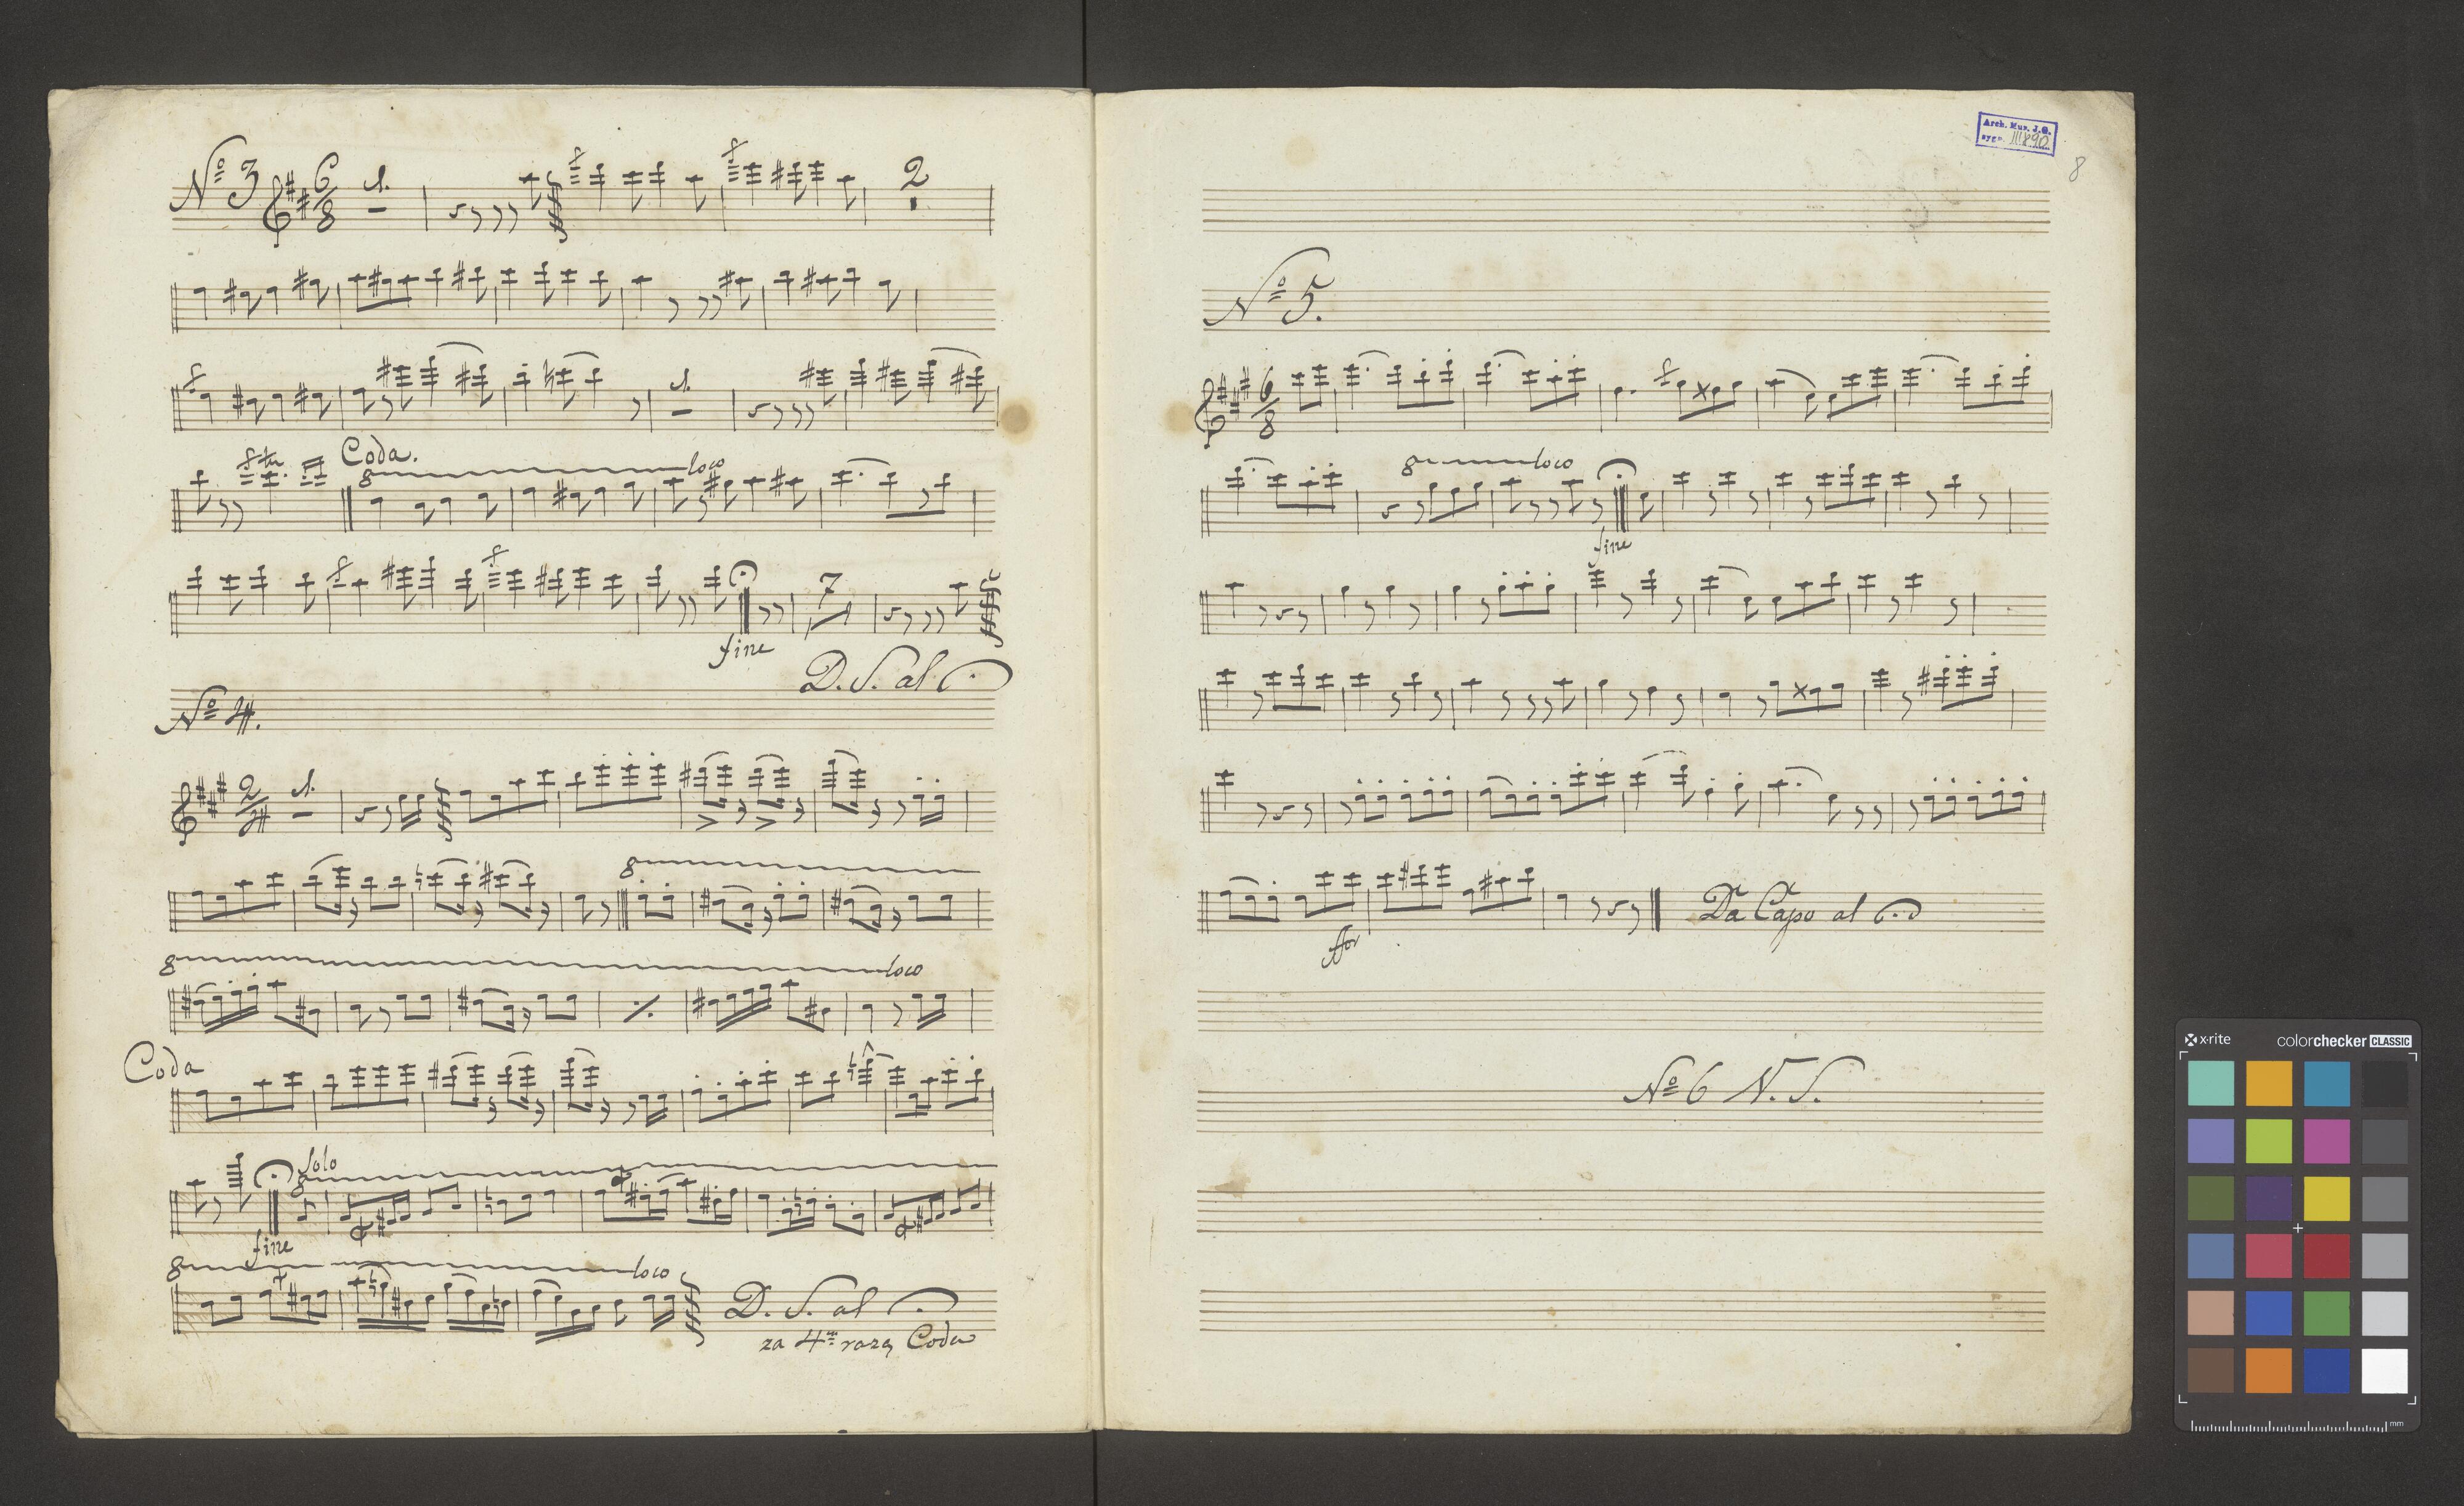 Nº 3 6/8 1. 2
Coda. 8 loco
7
fine
D. S. al
Nº 4.
2/4 1.
8
8 loco
Coda
Solo
8
fine
8 loco D. S. al
za 4m razą Coda
Arch. Muz. J.G.
sygn. III 890
8
Nº 5.
6/8
8 loco
fine
ffor
Da Capo al
Nº 6 N. S.
x-rite colorchecker CLASSIC
mm